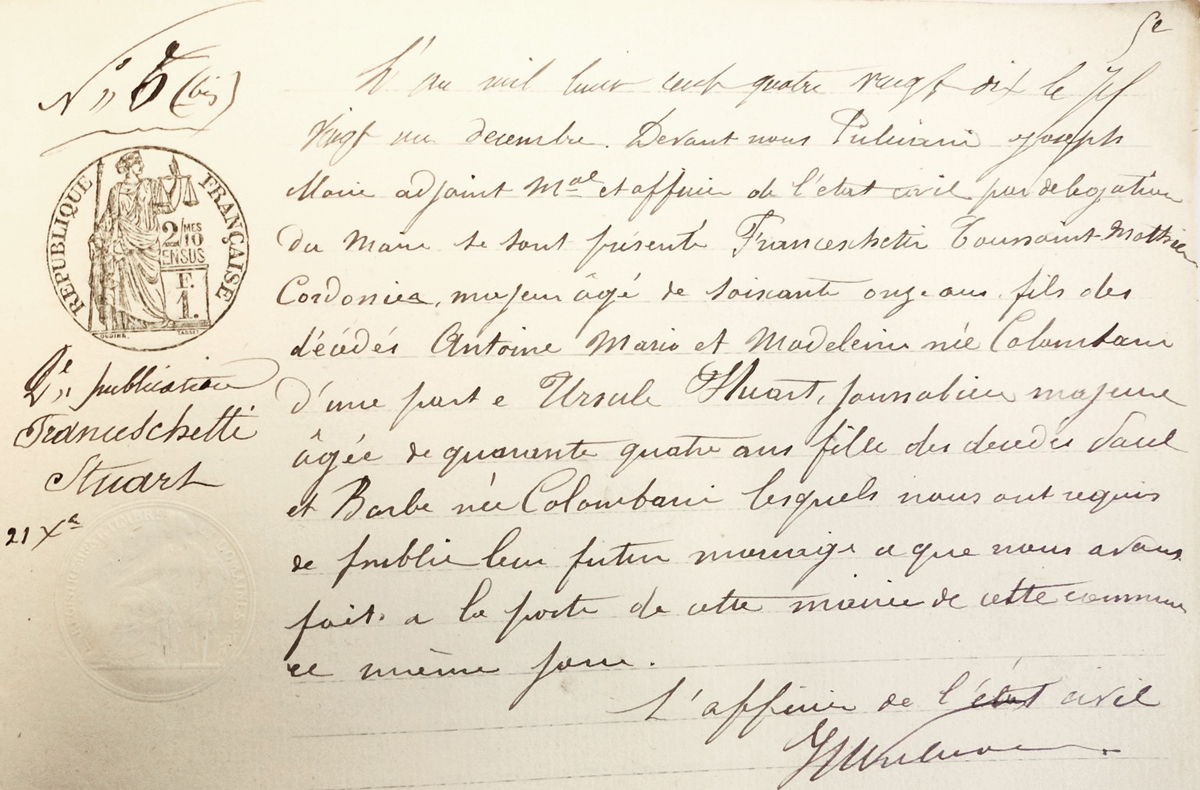 5e
N° 6 (bis)
L'an mil huit cent quatre vingt dix le
vingt un decembre. Devant nous Joseph
Marie adjoint Mal et officier de l'état civil par delegation
du Maire se sont présenté Franceschetti Toussaint Mathieu
Cordonier, majeur âgé de soixante onze ans fils des
décédés Antoine Marie et Madeleine née Colombani
d'une part e Ursule Stuart, journalière majeure
âgée de quarante quatre ans fille des decedes Paul
et Barbe née Colombani lesquels nous ont requis
de publie leur futur mariage a que nous avons
fait. a la porte de cette mairie de cette commune
ce même jour.
L'officier de l'état civil
RÉPUBLIQUE FRANÇAISE
2/10 MES
EN SUS
F.
1.
2e publication
Franceschetti
Stuart
21 Xe